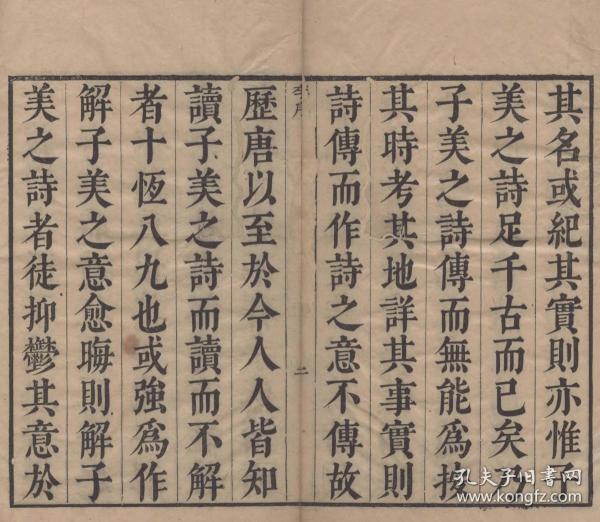 其名或紀其實則亦惟子
美之詩足千古而已矣
子美之詩傳而無能爲按
其時考其地詳其事實則
詩傳而作詩之意不傳故
李序
二
歷唐以至於今人人皆知
讀子美之詩而讀而不解
者十恆八九也或強爲作
解子美之意愈晦則解子
美之詩者徒抑鬱其意於
孔夫子旧书网
www.kongfz.com